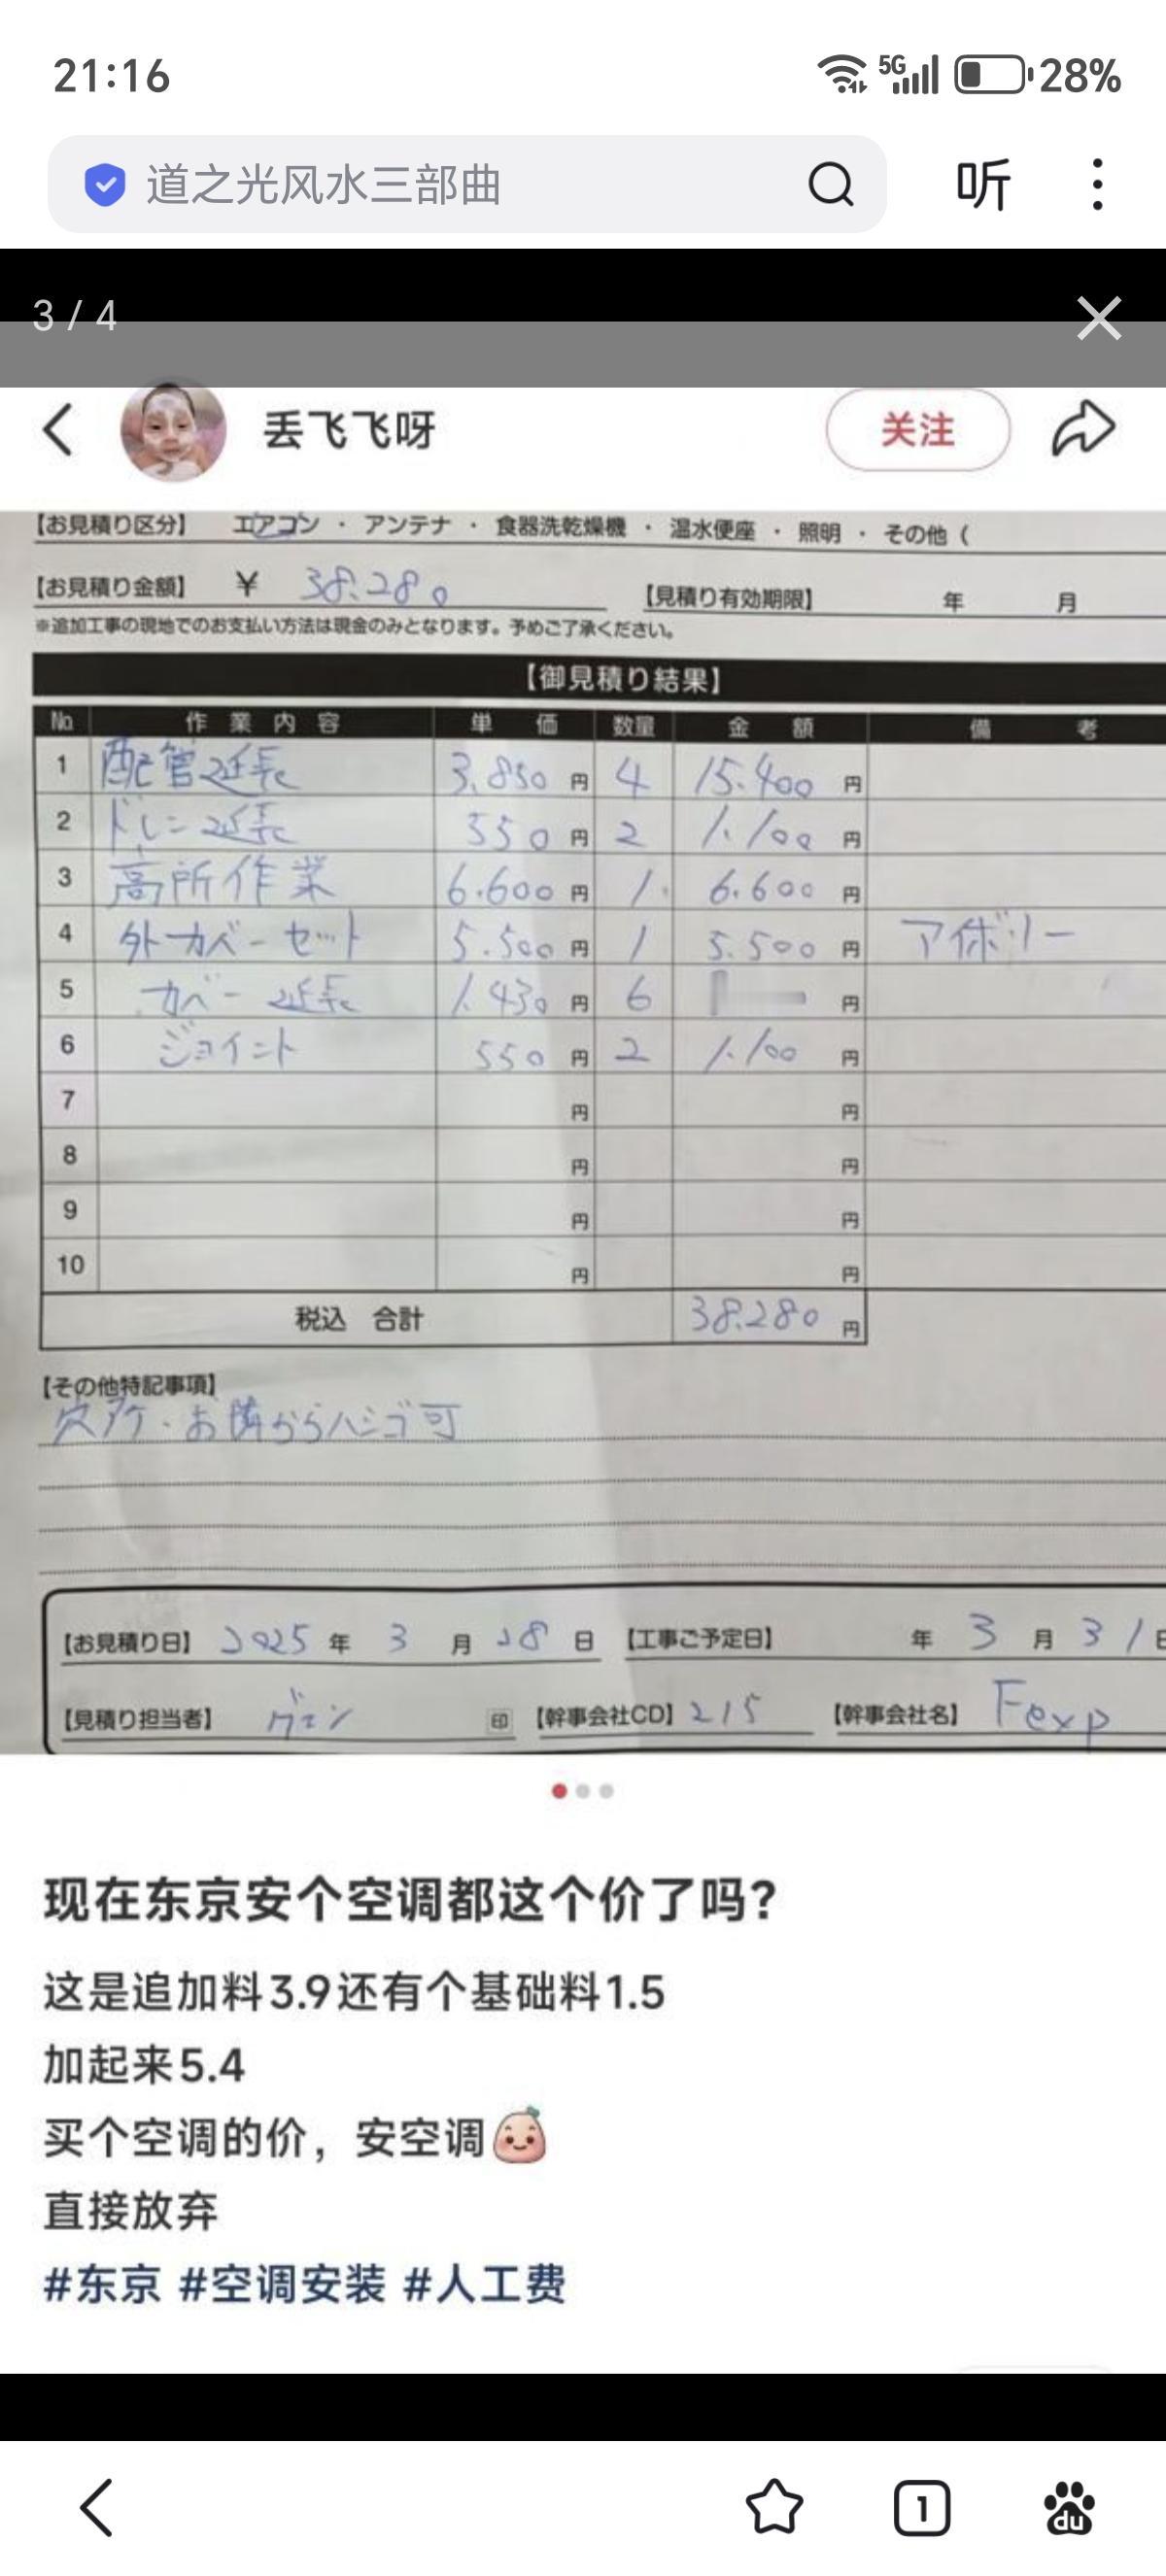 21:16 5G 28%
道之光风水三部曲 听
3 / 4
丢飞飞呀 关注
【お見積り区分】 エアコン ・ アンテナ ・ 食器洗乾燥機 ・ 温水便座 ・ 照明 ・ その他 (
【お見積り金額】 ¥ 38.280 【見積り有効期限】 年 月
※追加工事の現地でのお支払い方法は現金のみとなります。予めご了承ください。
【御見積り結果】
No. 作業内容 単価 数量 金額 備考
1 配管延長 3.850 円 4 15.400 円
2 ドレン延長 550 円 2 1.100 円
3 高所作業 6.600 円 1. 6.600 円
4 外カバーセット 5.500 円 1 5.500 円 アイボリー
5 カバー延長 1.430 円 6 円
6 ジョイント 550 円 2 1.100 円
7 円 円
8 円 円
9 円 円
10 円 円
税込 合計 38.280 円
【その他特記事項】
お隣からハシゴ可
【お見積り日】 2025 年 3 月 28 日 【工事ご予定日】 年 3 月 31 日
【見積り担当者】 印 【幹事会社CD】 215 【幹事会社名】 Fexp
现在东京安个空调都这个价了吗?
这是追加料3.9还有个基础料1.5
加起来5.4
买个空调的价，安空调
直接放弃
#东京 #空调安装 #人工费
1 du